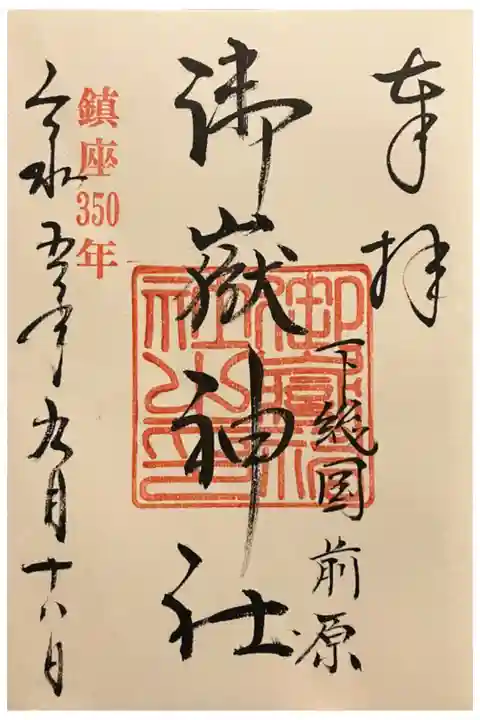 奉拝
下総国前原
御嶽神社
御嶽神
社之印
鎮座350年
令和五年九月十八日